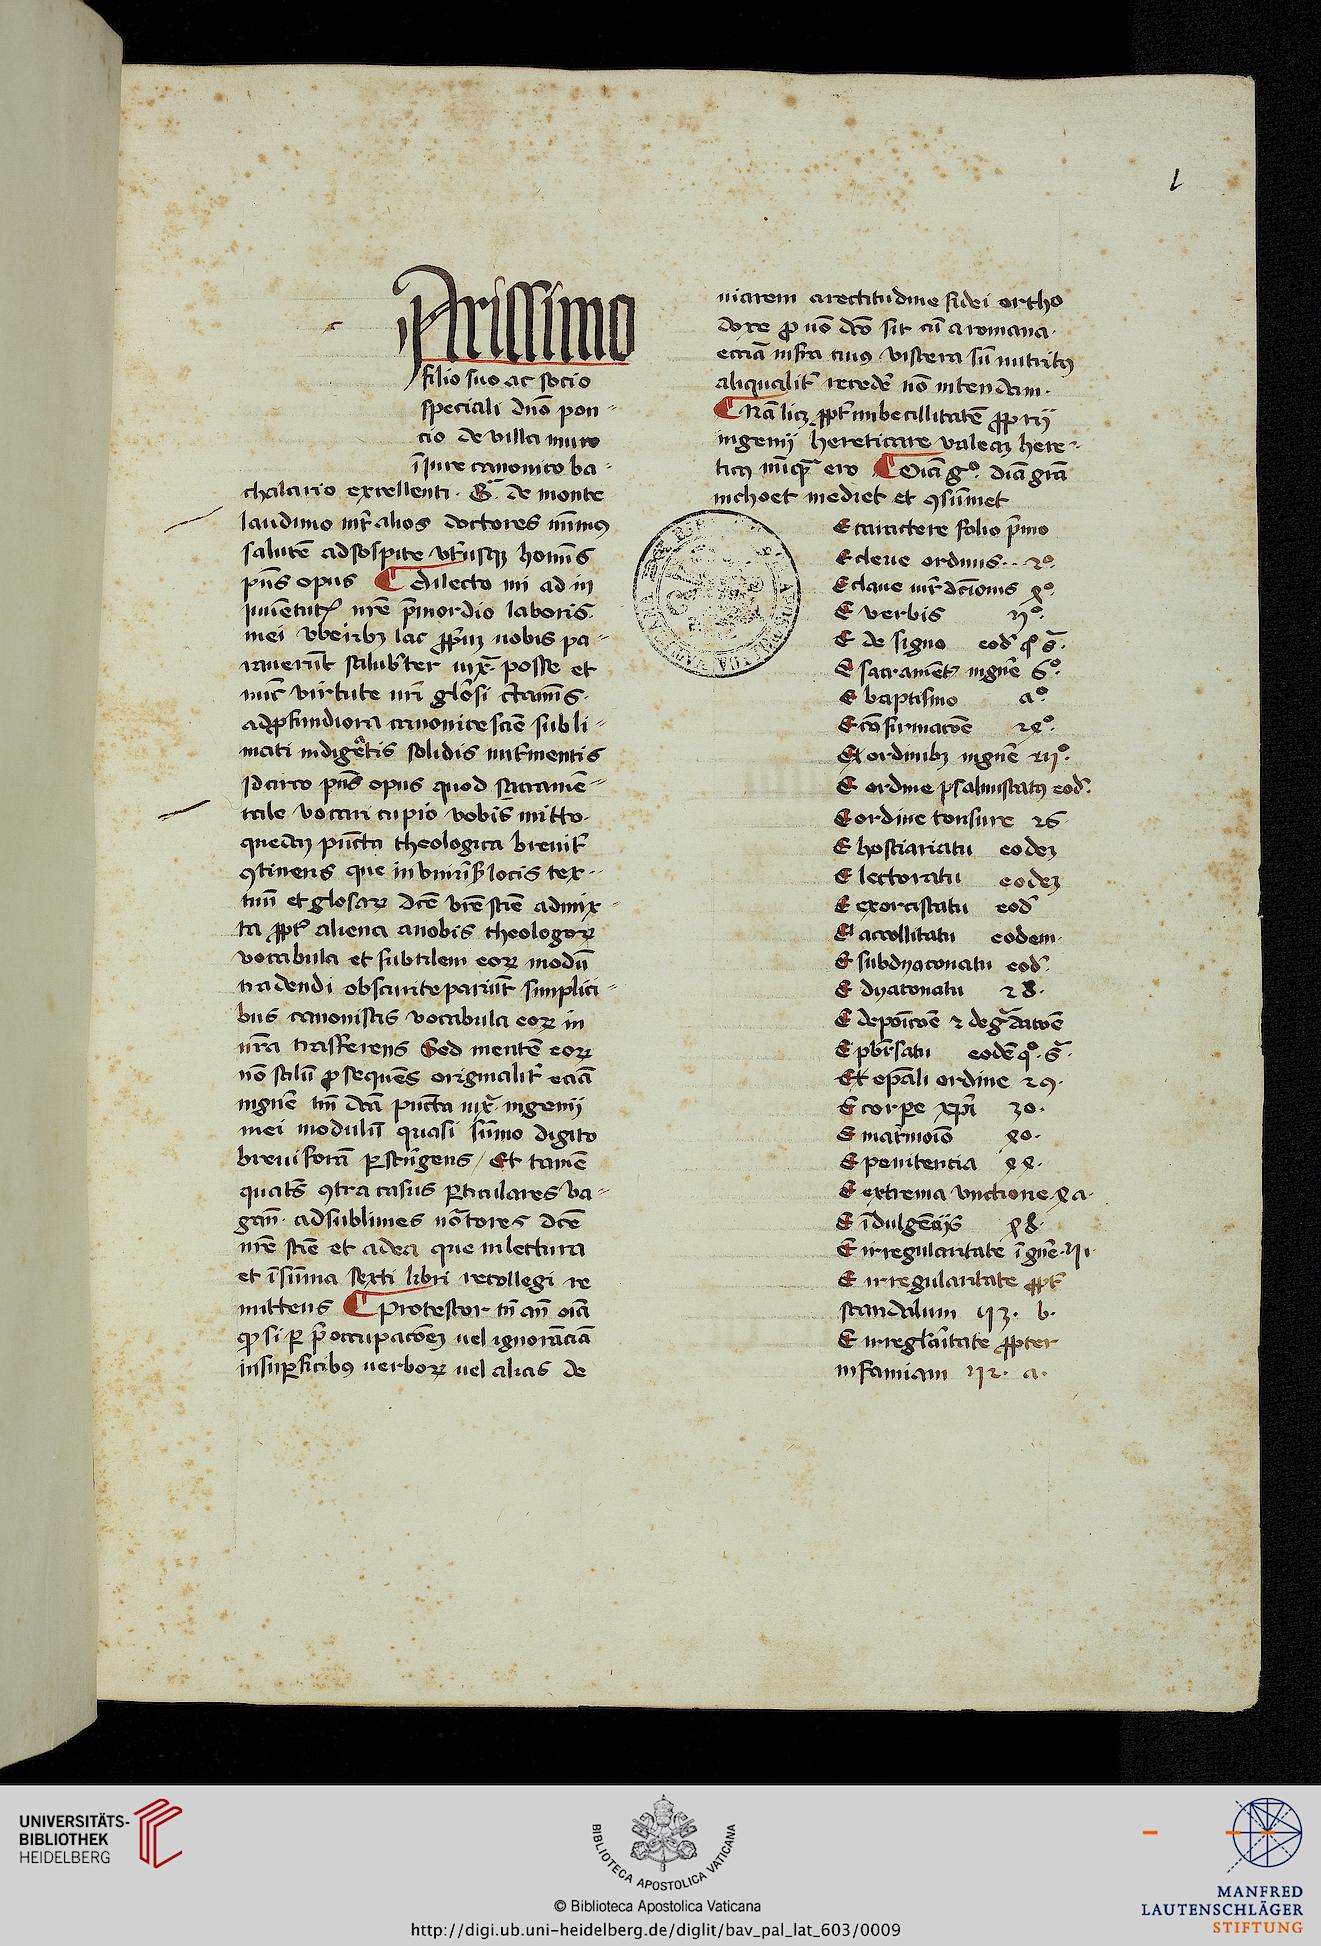 1
Arissimo
filio suo ac socio
speciali dn̄o pon-
cio de villa muro
ī iure canonico ba-
chalario excellenti. G. de monte
lauduno int̄ alios doctores mīimus
salutē ad sospite utriusque hoīnis
pn̄s opus Dilecto mi ad in
mei uberibus lac uobis pa-
rauerūt salubriter iux̄ posse et
nunc virtute nr̄i glōsi
ad profundiora canonice sciē subli-
mati indigētis solidis nutrimentis
Idcirco pn̄s opus quod sacramē-
tale vocari cupio vobis mitto
quedam pūcta theologica breuit̄
ꝯtinens que in locis tex-
tuū et glosarꝝ dc̄e vr̄e sciē admix-
ta ꝓpt̄ aliena a uobis theologorꝝ
vocabula et subtilem eorꝝ modū
tradendi obscurite pariūt simplici-
bus canonistis vocabula eorꝝ in
nr̄a trāsferens Sed mentē eorꝝ
nō stilū ꝓsequēs originalit̄ eciā
ingn̄e tn̄ dc̄a pūcta iux̄ ingenij
mei modulū quasi sūmo digito
breui forā ꝑstrīgens / Et tamē
ꝯtra casus ꝑticulares va-
gan̄. ad sublimes dc̄e
nr̄e sciē et ad ea que in lectura
et ī sūma sexti libri recollegi re
mittens Protestor tn̄ an̄ oīa
ꝙ si ꝑ p̄occupacōem uel ignorāciā
in suꝑficibus uerborꝝ uel alias de
uiarem a rectitudine fidei ortho
doxe ꝓ nō dc̄o sit cū a romana
ecc̄ia infra cuius viscera sū nutritus
aliqualit̄ recedē nō intendam.
Nā licꝫ ꝓpt̄ imbecillitatē ꝓprij
ingenij hereticare valeam here-
ticus nūquā ero Oīa gº. diā grā
inchoet mediet et ꝯsūmet
E caractere folio p̄mo
E claue ordinis 2º
E claue iur̄dc̄ionis
E verbis
E de signo eod̄
E sacramentꝫ ingn̄e 6º.
E baptismo
E cōfirmacōe
Ex ordinibus ingn̄e
E ordine psalmistatus eod̄.
E ordine tonsure 26
E hostiariatu eodeꝫ
E lectoratu eodeꝫ
E exorcistatu eod̄
E accollitatu eodem.
E subdyaconatu eod̄.
E dyaconatu 28.
E deposicōe ⁊ degradacōe
E pbr̄satu eodē qº. s̄.
Ex ep̄ali ordine 29.
E corpe xp̄i 30.
E mat̄moīo
E penitencia
E extrema vnctione
E īdulgēcijs
E irregularitate ī gn̄e
E irregularitate ꝓpt̄
scandalum b.
E irregl̄aritate ꝓpter
infamiam a.
UNIVERSITÄTS-
BIBLIOTHEK
HEIDELBERG
BIBLIOTECA APOSTOLICA VATICANA
© Biblioteca Apostolica Vaticana
http://digi.ub.uni-heidelberg.de/diglit/bav_pal_lat_603/0009
MANFRED
LAUTENSCHLÄGER
STIFTUNG